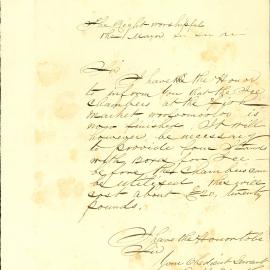 The Right Worshipful
the Mayor
Sir
I have the the Honor
to inform You that the Ice
Chambers at the Fish
Market Woolloomooloo is
now finished it will
however be necessary
to provide four Stands
with Boxes for Ice be-
fore the Chambers can
be utilized this will
cost about £20, twenty
pounds.
I have the Honor to be
Sir
Your Obedient Servant